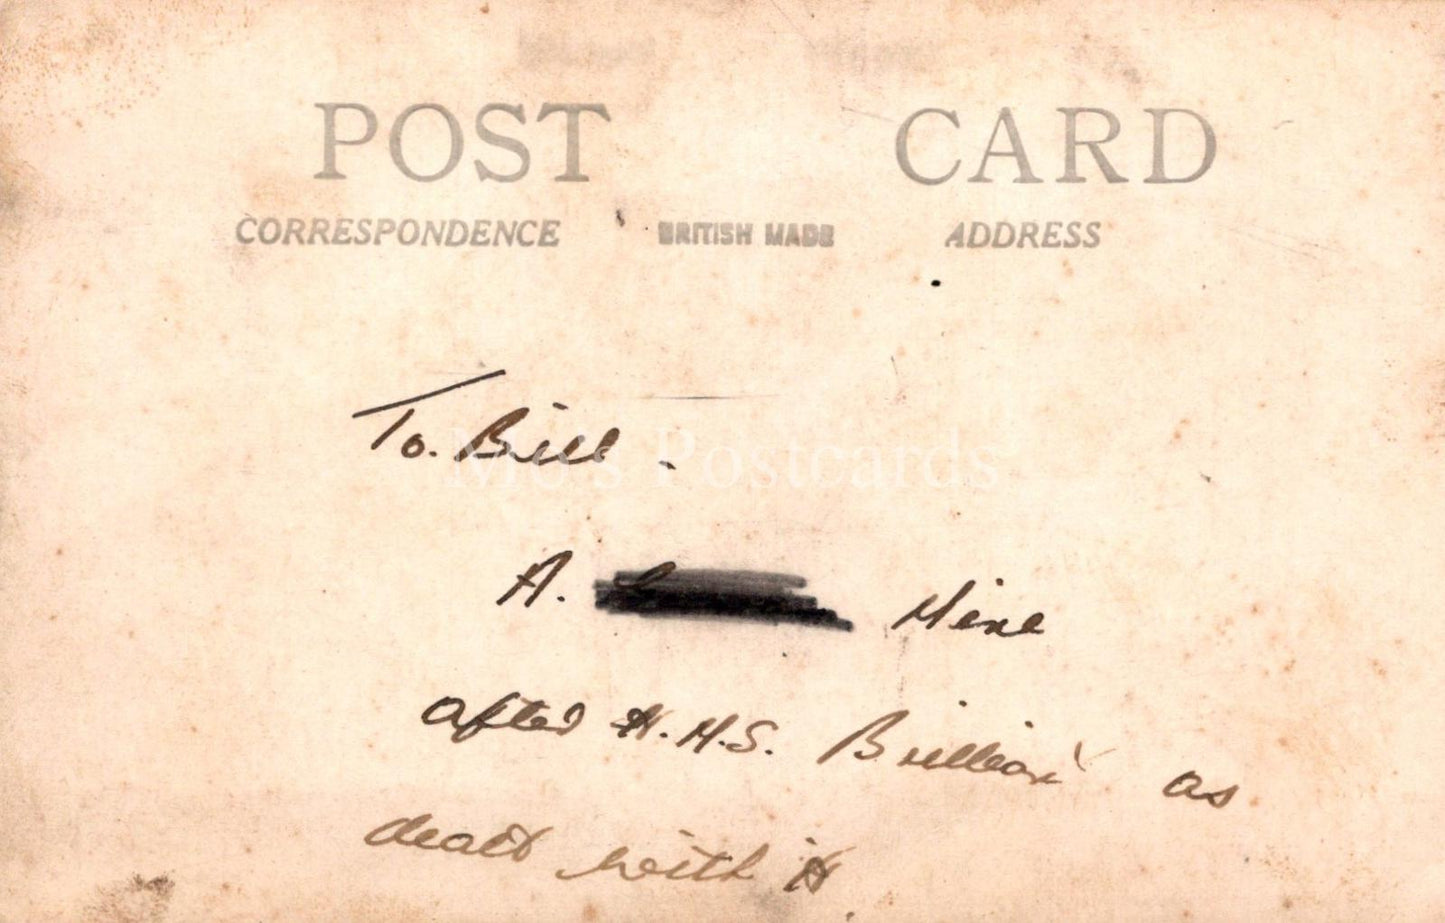 POST CARD
CORRESPONDENCE BRITISH MADE ADDRESS
To. Bill -
Mo's Postcards
A. Mine
after H.M.S. Brilliant as
dealt with it